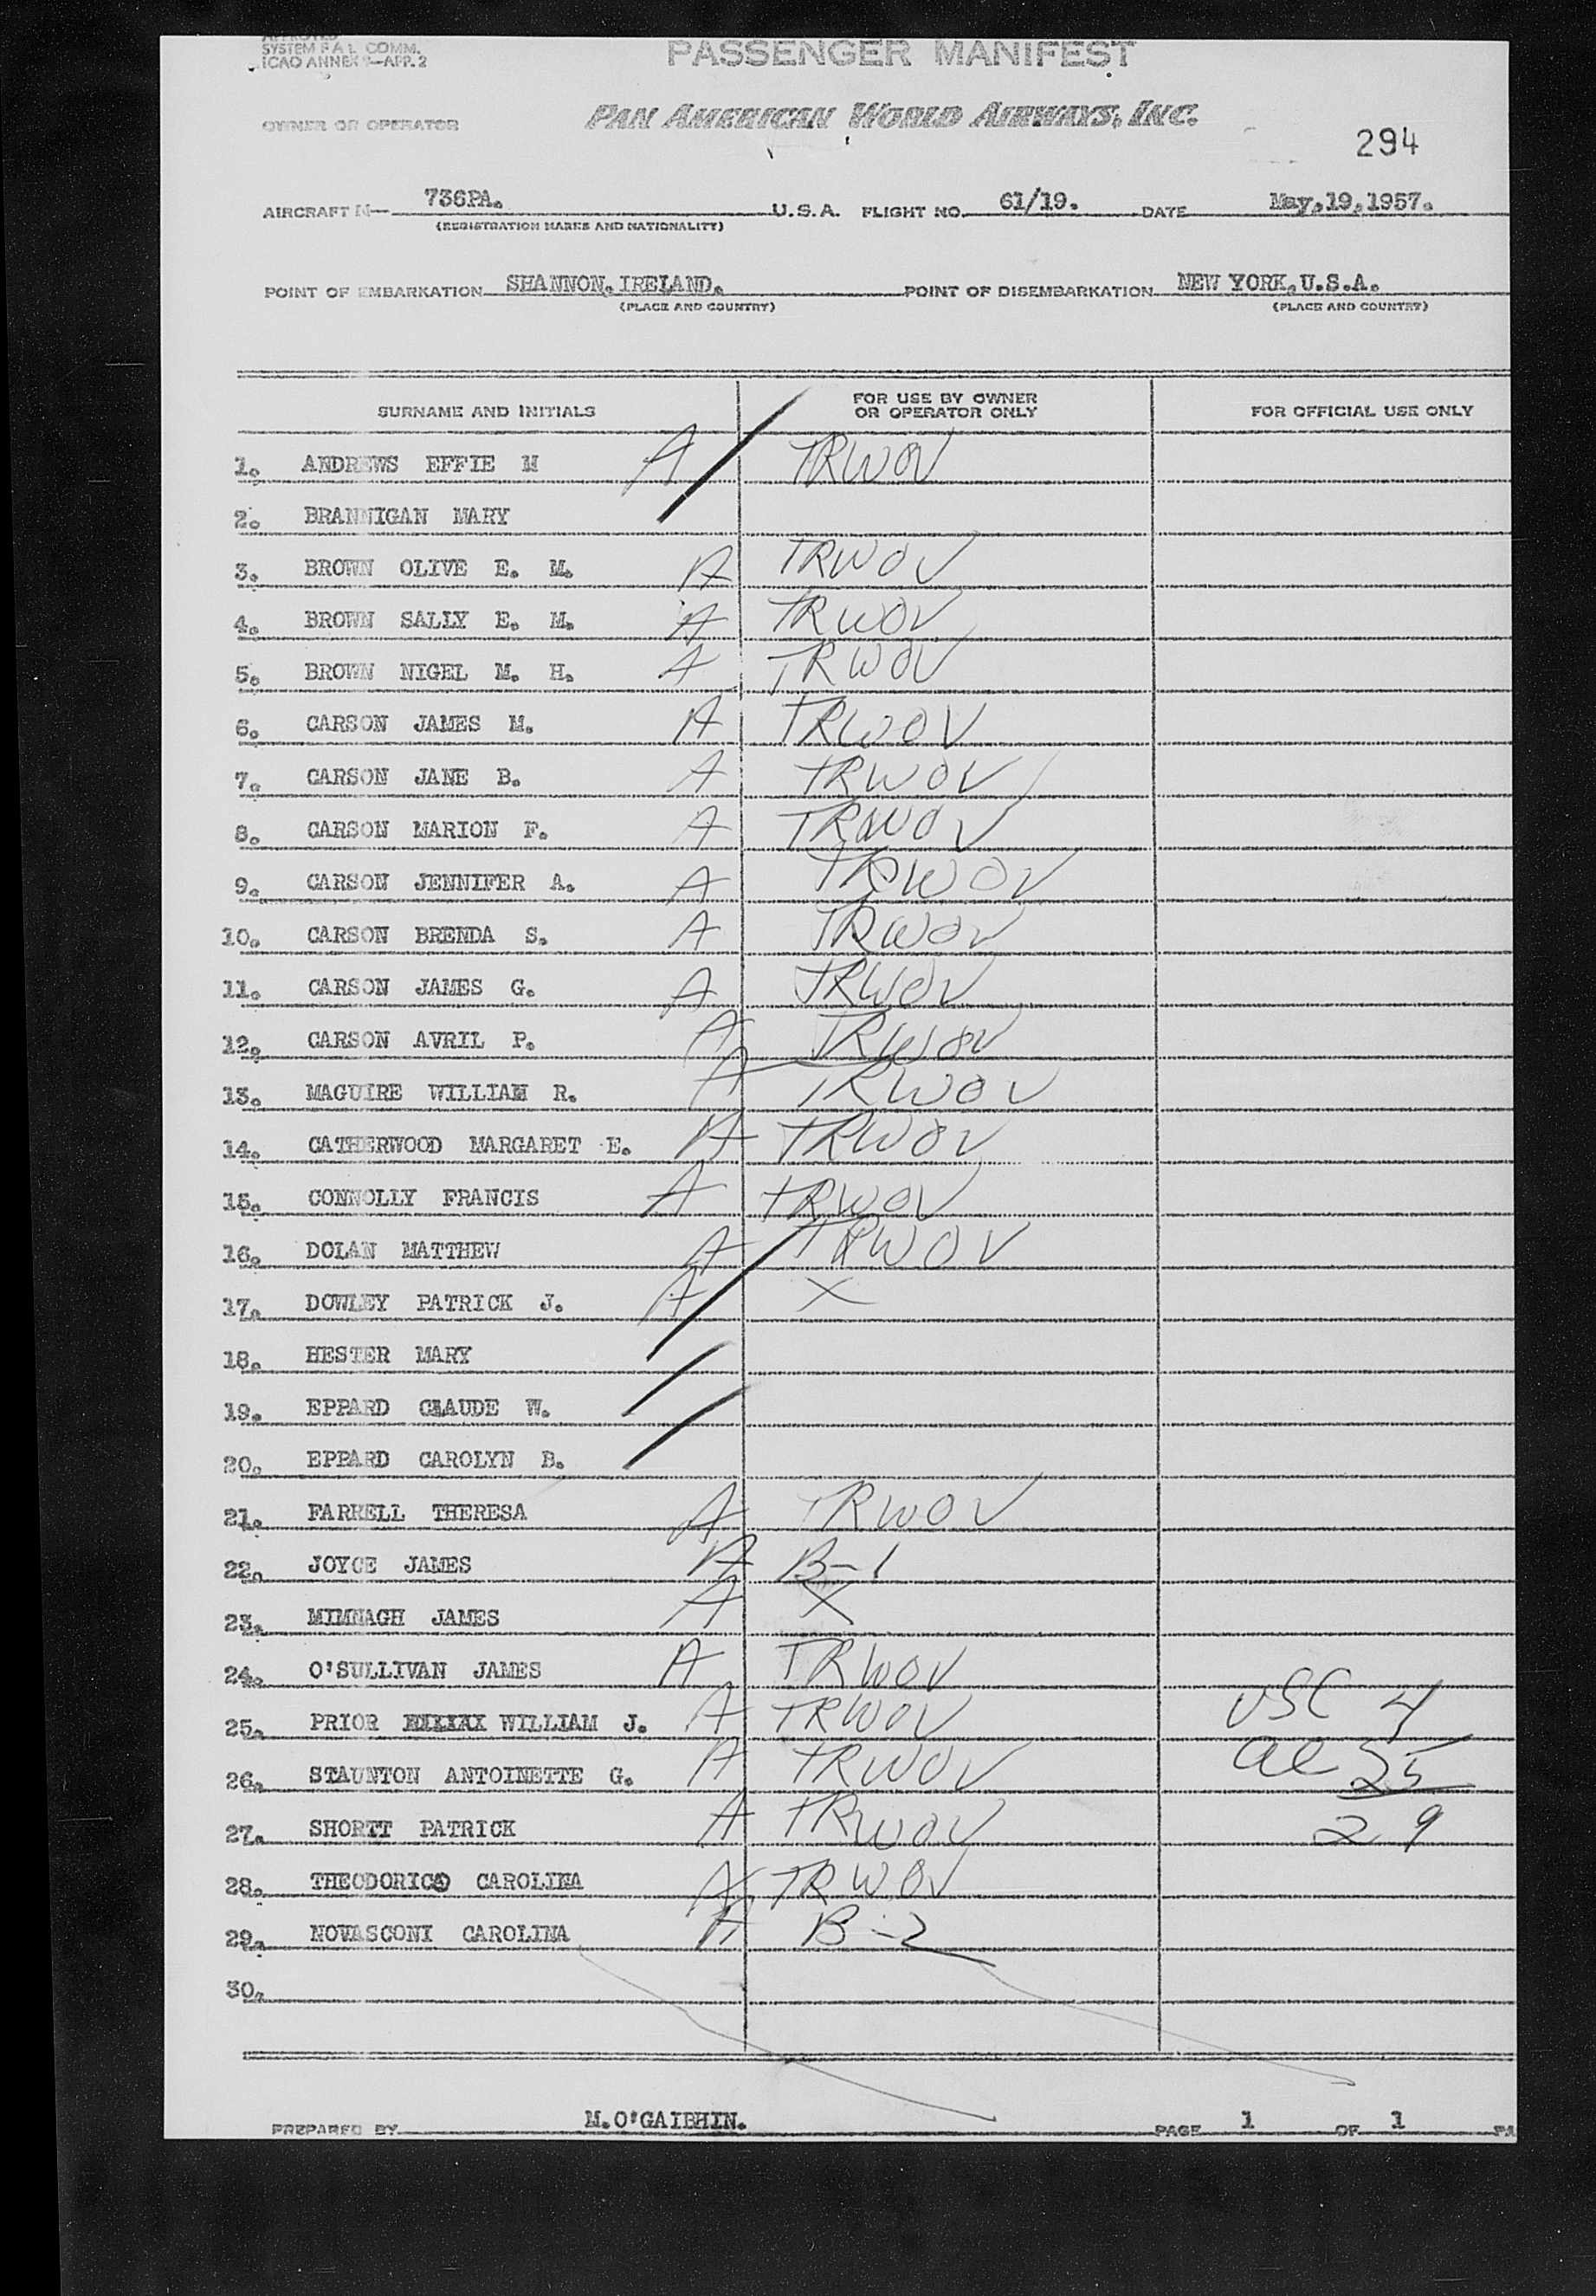 APPROVED
SYSTEM F A L COMM.
ICAO ANNEX 9—APP. 2
PASSENGER MANIFEST
OWNER OR OPERATOR
PAN AMERICAN WORLD AIRWAYS, INC.
294
AIRCRAFT N— 736PA. U.S.A. FLIGHT NO. 61/19. DATE May,19,1957.
(REGISTRATION MARKS AND NATIONALITY)
POINT OF EMBARKATION SHANNON, IRELAND. POINT OF DISEMBARKATION NEW YORK, U.S.A.
(PLACE AND COUNTRY) (PLACE AND COUNTRY)
SURNAME AND INITIALS FOR USE BY OWNER OR OPERATOR ONLY FOR OFFICIAL USE ONLY
1. ANDREWS EFFIE M A TRWOV
2. BRANNIGAN MARY
3. BROWN OLIVE E. M. A TRWOV
4. BROWN SALLY E. M. A TRWOV
5. BROWN NIGEL M. H. A TRWOV
6. CARSON JAMES M. A TRWOV
7. CARSON JANE B. A TRWOV
8. CARSON MARION F. A TRWOV
9. CARSON JENNIFER A. A TRWOV
10. CARSON BRENDA S. A TRWOV
11. CARSON JAMES G. A TRWOV
12. CARSON AVRIL P. A TRWOV
13. MAGUIRE WILLIAM R. A TRWOV
14. CATHERWOOD MARGARET E. A TRWOV
15. CONNOLLY FRANCIS A TRWOV
16. DOLAN MATTHEW A TRWOV
17. DOWLEY PATRICK J. A X
18. HESTER MARY
19. EPPARD CLAUDE W.
20. EPPARD CAROLYN B.
21. FARRELL THERESA A TRWOV
22. JOYCE JAMES A B-1
23. MIMNAGH JAMES A X
24. O'SULLIVAN JAMES A TRWOV
25. PRIOR WILLIAM J. A TRWOV USC 4
26. STAUNTON ANTOINETTE G. A TRWOV al 25
27. SHORTT PATRICK A TRWOV 29
28. THEODORICO CAROLINA A TRWOV
29. NOVASCONI CAROLINA A B-2
30.
PREPARED BY M. O'GAIBHIN. PAGE 1 OF 1 PA